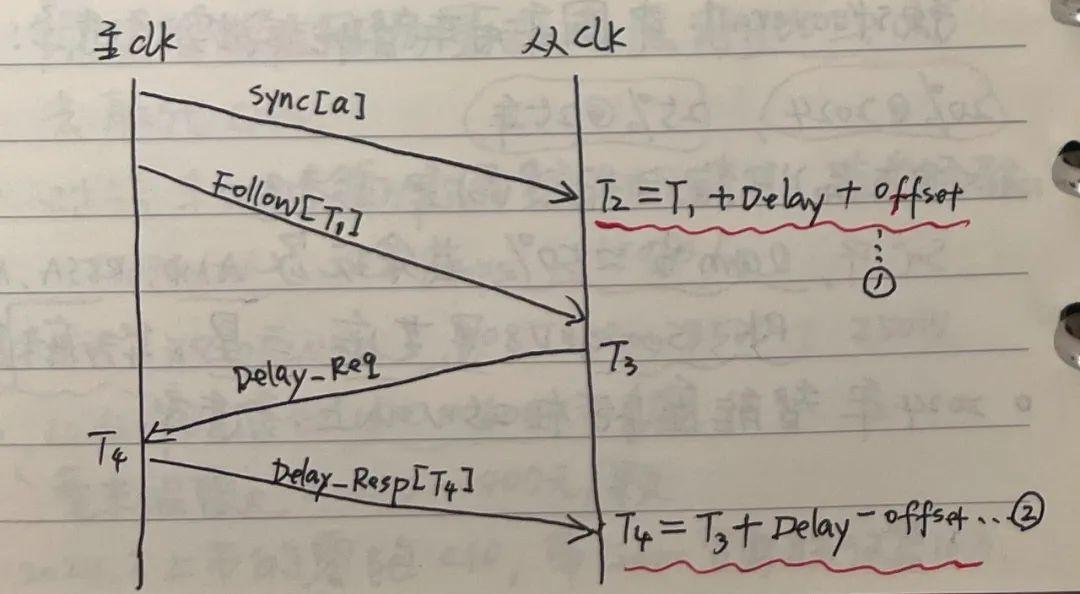 主clk
从clk
Sync[a]
Follow[T₁]
T₂=T₁+Delay+offset
①
Delay_Req
T₃
T₄
Delay_Resp[T₄]
T₄=T₃+Delay-offset...②